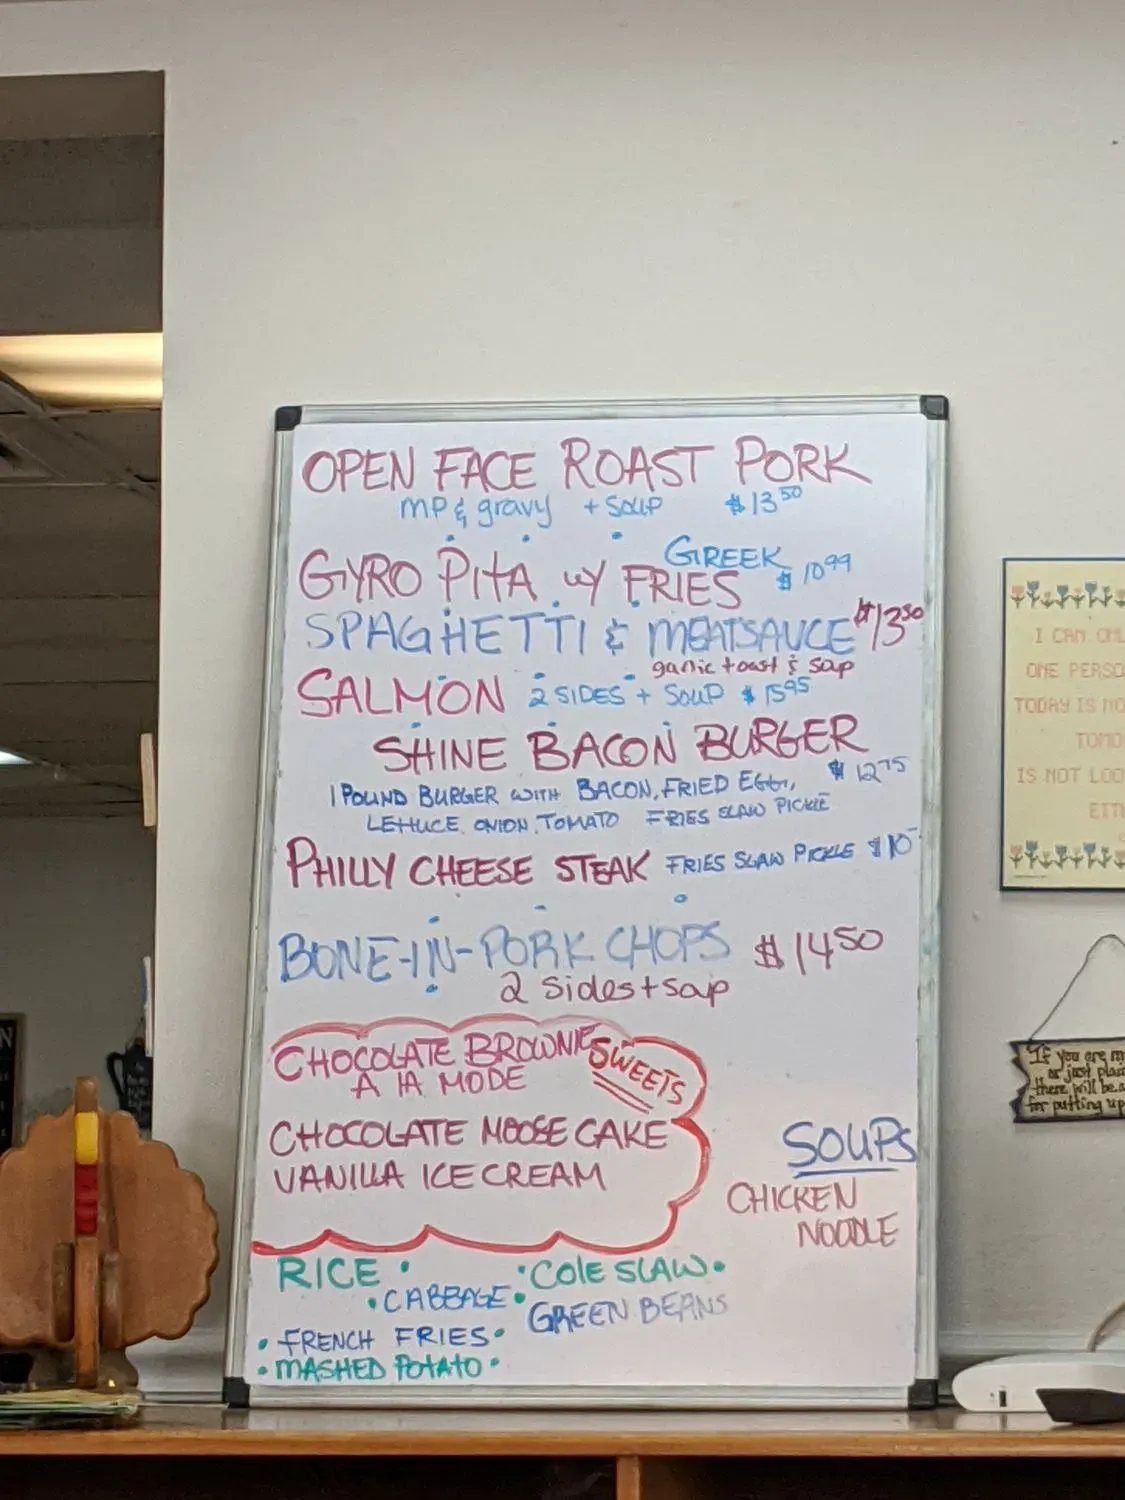 OPEN FACE ROAST PORK
MP & gravy + SOUP $13.50
GYRO PITA W/ GREEK FRIES $10.99
SPAGHETTI & MEATSAUCE $13.50
garlic toast & soup
SALMON 2 SIDES + SOUP $15.95
SHINE BACON BURGER
$12.75
1 POUND BURGER WITH BACON, FRIED EGG,
LETTUCE, ONION, TOMATO FRIES SLAW PICKLE
PHILLY CHEESE STEAK FRIES SLAW PICKLE $10-
BONE-IN-PORK CHOPS $14.50
2 sides + soup
CHOCOLATE BROWNIE
A LA MODE
SWEETS
CHOCOLATE MOOSE CAKE
VANILLA ICE CREAM
SOUPS
CHICKEN
NOODLE
RICE • • COLE SLAW •
• CABBAGE • GREEN BEANS
• FRENCH FRIES •
• MASHED POTATO •
I CAN
ONE
TODAY IS
IS NOT
If you are
or just
there will be
for putting up